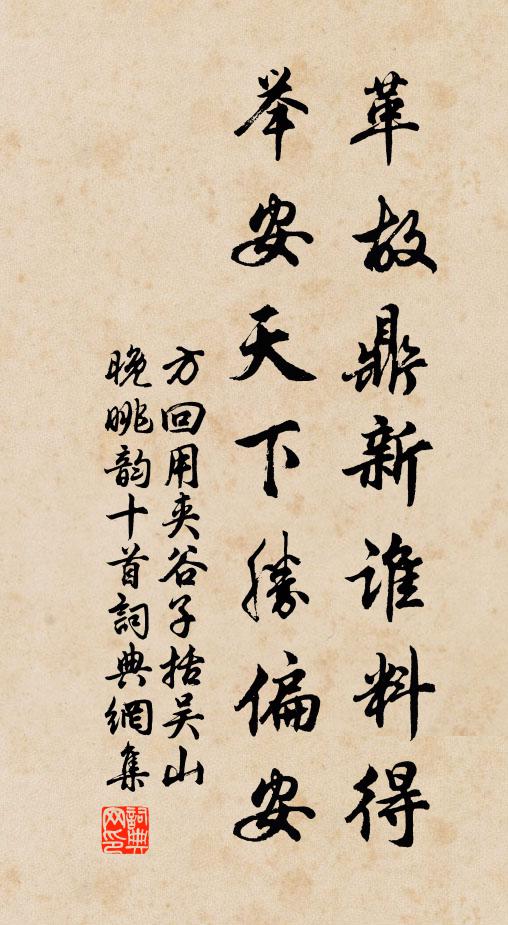 革故鼎新谁料得
举安天下勝偏安
方回用夹谷子括吴山
晚眺韵十首詞典網集
詞典网印